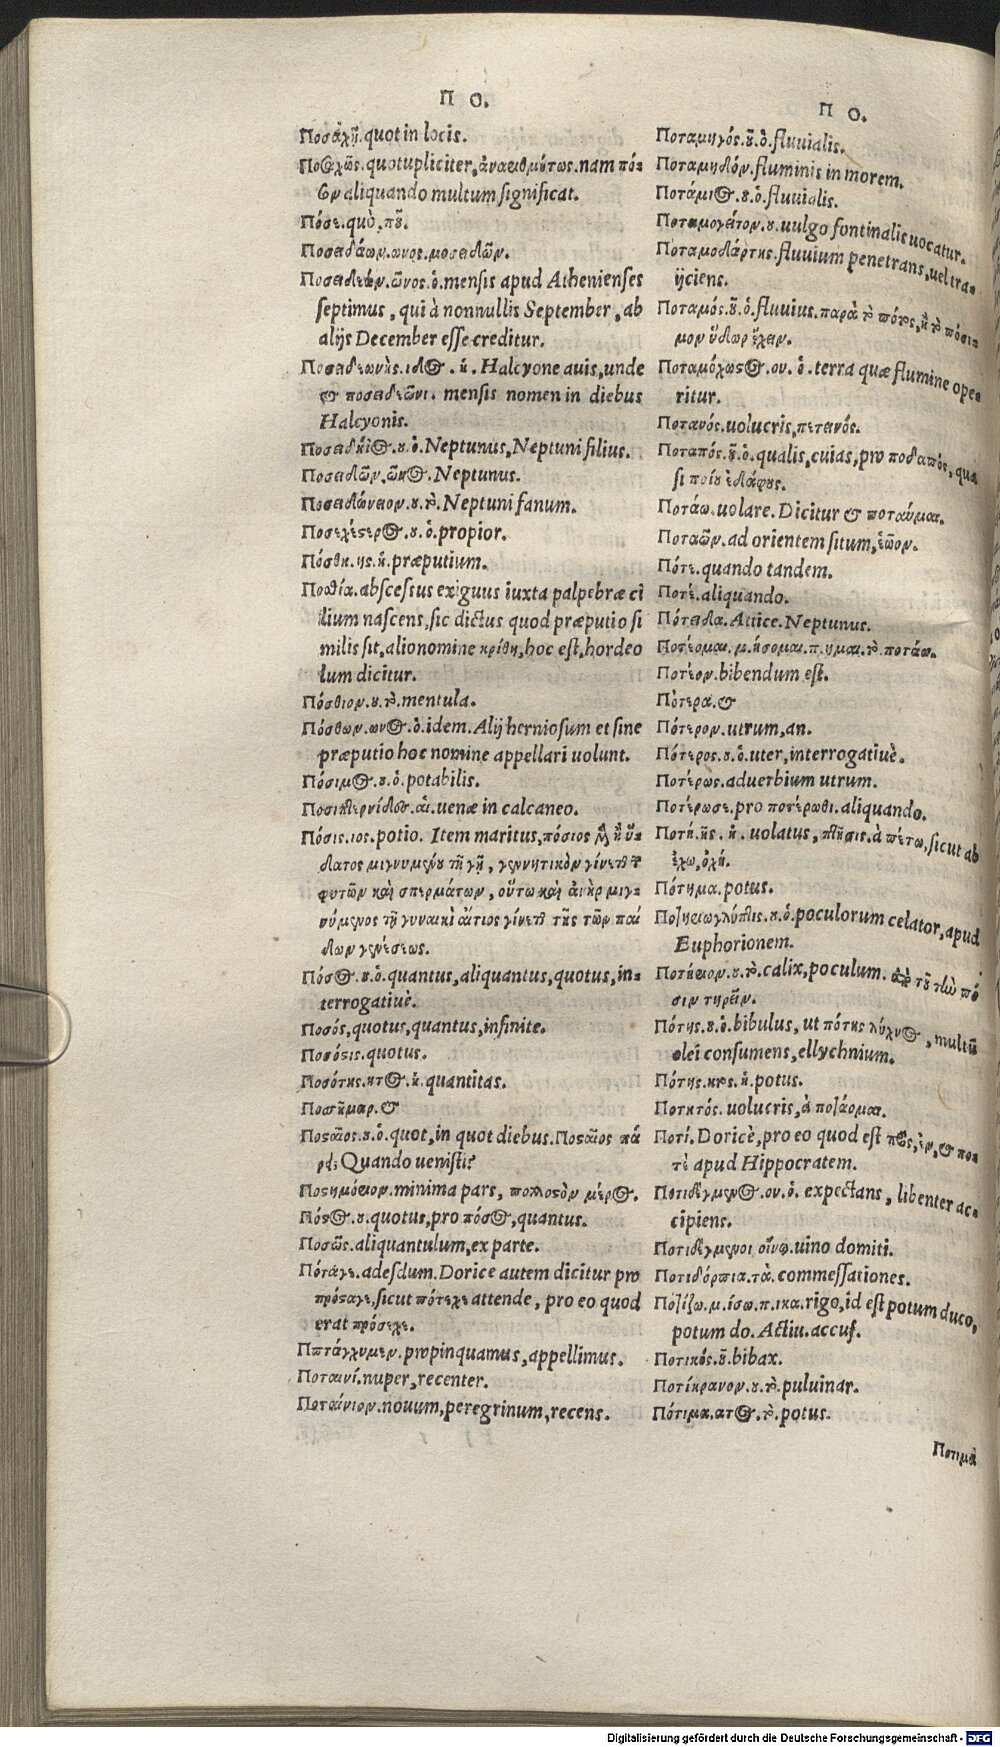 Π Ο.
Ποσάχῆ. quot in locis.
Ποσαχῶς. quotupliciter, nam πό-
σον aliquando multum significat.
Πόσε. quò, ποῦ.
Ποσειδάων. ωνος. ποσειδῶν.
Ποσειδεών. ῶνος. ὁ. mensis apud Athenienses
septimus, qui à nonnullis September, ab
alijs December esse creditur.
Ποσειδεωνὶς. ιδος. ἡ. Halcyone auis, unde
& ποσειδεῶνι. mensis nomen in diebus
Halcyonis.
Ποσειδήϊος. ου. ὁ. Neptunus, Neptuni filius.
Ποσειδῶν. ῶνος. Neptunus.
Ποσειδώνειον. ου. τὸ. Neptuni fanum.
Ποσεχέστερος. ου. ὁ. propior.
Πόσθη. ης. ἡ. præputium.
Ποσθία. abscessus exiguus iuxta palpebræ ci
lium nascens, sic dictus quod præputio si
milis sit, alio nomine κρίθη, hoc est, hordeo
lum dicitur.
Πόσθιον. ου. τὸ. mentula.
Πόσθων. ωνος. ὁ. idem. Alij herniosum et sine
præputio hoc nomine appellari uolunt.
Πόσιμος. ου. ὁ. potabilis.
αἱ. uenæ in calcaneo.
Πόσις. ιος. potio. Item maritus, πόσιος ὕ-
δατος μιγνυμένου τῇ γῇ, γεννητικὸν γίνεται τ
φυτῶν καὶ σπερμάτων, οὕτω καὶ ἀνὴρ μιγ-
νύμενος τῇ γυναικὶ αἴτιος γίνεται τῆς τῶν παί
δων γενέσεως.
Πόσος. ου. ὁ. quantus, aliquantus, quotus, in-
terrogatiuè.
Ποσός, quotus, quantus, infinite.
Ποσόσις. quotus.
Ποσότης. ητος. ἡ. quantitas.
Ποσῆμαρ. &
Ποσαῖος. ου. ὁ. quot, in quot diebus. Ποσαῖος πά
ρει; Quando uenisti?
Ποστημόριον. minima pars, πολλοστὸν μέρος.
Πόστος. ου. quotus, pro πόσος, quantus.
Ποσῶς. aliquantulum, ex parte.
Πόταγε. adesdum. Dorice autem dicitur pro
πρόσαγε, sicut πότεχε attende, pro eo quod
erat πρόσεχε.
Ππτάγχυμεν. propinquamus, appellimus.
Ποταινί. nuper, recenter.
Ποταίνιον. nouum, peregrinum, recens.
Π Ο.
Ποταμηγός. οῦ. ὁ. fluuialis.
Ποταμηδόν. fluminis in morem.
Ποτάμιος. ου. ὁ. fluuialis.
Ποταμογείτον. ου. uulgo fontinalis uocatur.
Ποταμοδιάρτης. fluuium penetrans, uel tra-
ijciens.
Ποταμός. οῦ. ὁ. fluuius. παρὰ τὸ πότος, ἢ τὸ πόσι-
μον ὕδωρ ἔχειν.
Ποταμόχωσος. ου. ὁ. terra quæ flumine ope-
ritur.
Ποτανός. uolucris, πετεινός.
Ποταπός. οῦ. ὁ. qualis, cuias, pro ποδαπός, qua
si ποίου ἐδάφους.
Ποτάω. uolare. Dicitur & ποταῦμαι.
Ποταῶν. ad orientem situm, ἑῶον.
Πότε. quando tandem.
Ποτέ. aliquando.
Πότειδα. Attice. Neptunus.
Ποτέομαι. μ. ήσομαι. π. ημαι. τὸ ποτάω.
Ποτέον. bibendum est.
Πότερα. &
Πότερον. utrum, an.
Πότερος. ου. ὁ. uter, interrogatiuè.
Ποτέρως. aduerbium utrum.
Ποτέρωσε. pro ποτέρωθι. aliquando.
Ποτή. ῆς. ἡ. uolatus, πτῆσις. ἀ πέτω, sicut ab
ἔχω, ὀχή.
Πότημα. potus.
Ποτηριογλύπτης. ου. ὁ. poculorum celator, apud
Euphorionem.
Ποτήριον. ου. τὸ. calix, poculum. παρὰ τοῦ τὴν πό
σιν τηρεῖν.
Πότης. ου. ὁ. bibulus, ut πότης λύχνος, multũ
olei consumens, ellychnium.
Πότης. ητος. ἡ. potus.
Ποτητός. uolucris, ἀ ποτάομαι.
Ποτί. Doricè, pro eo quod est πρὸς, ἐν, & πο-
τὲ apud Hippocratem.
Ποτιδέγμενος. ου. ὁ. expectans, libenter ac-
cipiens.
Ποτιδέγμενοι οἴνῳ. uino domiti.
Ποτιδόρπια. τὰ. commessationes.
Ποτίζω. μ. ίσω. π. ικα. rigo, id est potum duco,
potum do. Actiu. accus.
Ποτικός. οῦ. bibax.
Ποτίκρανον. ου. τὸ. puluinar.
Πότιμα. ατος. τὸ. potus.
Ποτιμὰ
Digitalisierung gefördert durch die Deutsche Forschungsgemeinschaft - DFG